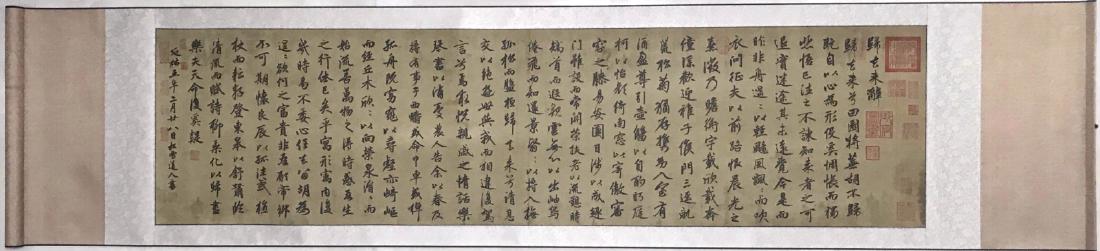 歸去來辭
歸去來兮田園將蕪胡不歸
既自以心為形役奚惆悵而獨
悲悟已往之不諫知來者之可
追實迷途其未遠覺今是而
昨非舟遙〻以輕颺風飄〻而吹
衣問征夫以前路恨晨光之
熹微乃瞻衡宇載欣載奔
僮僕歡迎稚子候門三逕就
荒松菊猶存攜幼入室有
酒盈尊引壺觴以自酌眄庭
柯以怡顏倚南窗以寄傲審
容之膝易安園日涉以成趣
門雖設而常關策扶老以流憩時
矯首而遐觀雲無心以出岫鳥
倦飛而知還景翳〻以將入撫
孤松而盤桓歸去來兮請息
交以絕遊世與我而相違復駕
言兮焉求悅親戚之情話樂
琴書以消憂農人告余以春及
將有事乎西疇或命巾車或棹
孤舟既窈窕以尋壑亦崎嶇
而經丘木欣〻以向榮泉涓〻而
始流善萬物之得時感吾生
之行休已矣乎寓形宇內復
幾時曷不委心任去留胡為
遑〻欲何之富貴非吾願帝鄉
不可期懷良辰以孤往或植
杖而耘耔登東皋以舒嘯臨
清流而賦詩聊乘化以歸盡
樂夫天命復奚疑
延祐五年二月廿八日松雪道人書